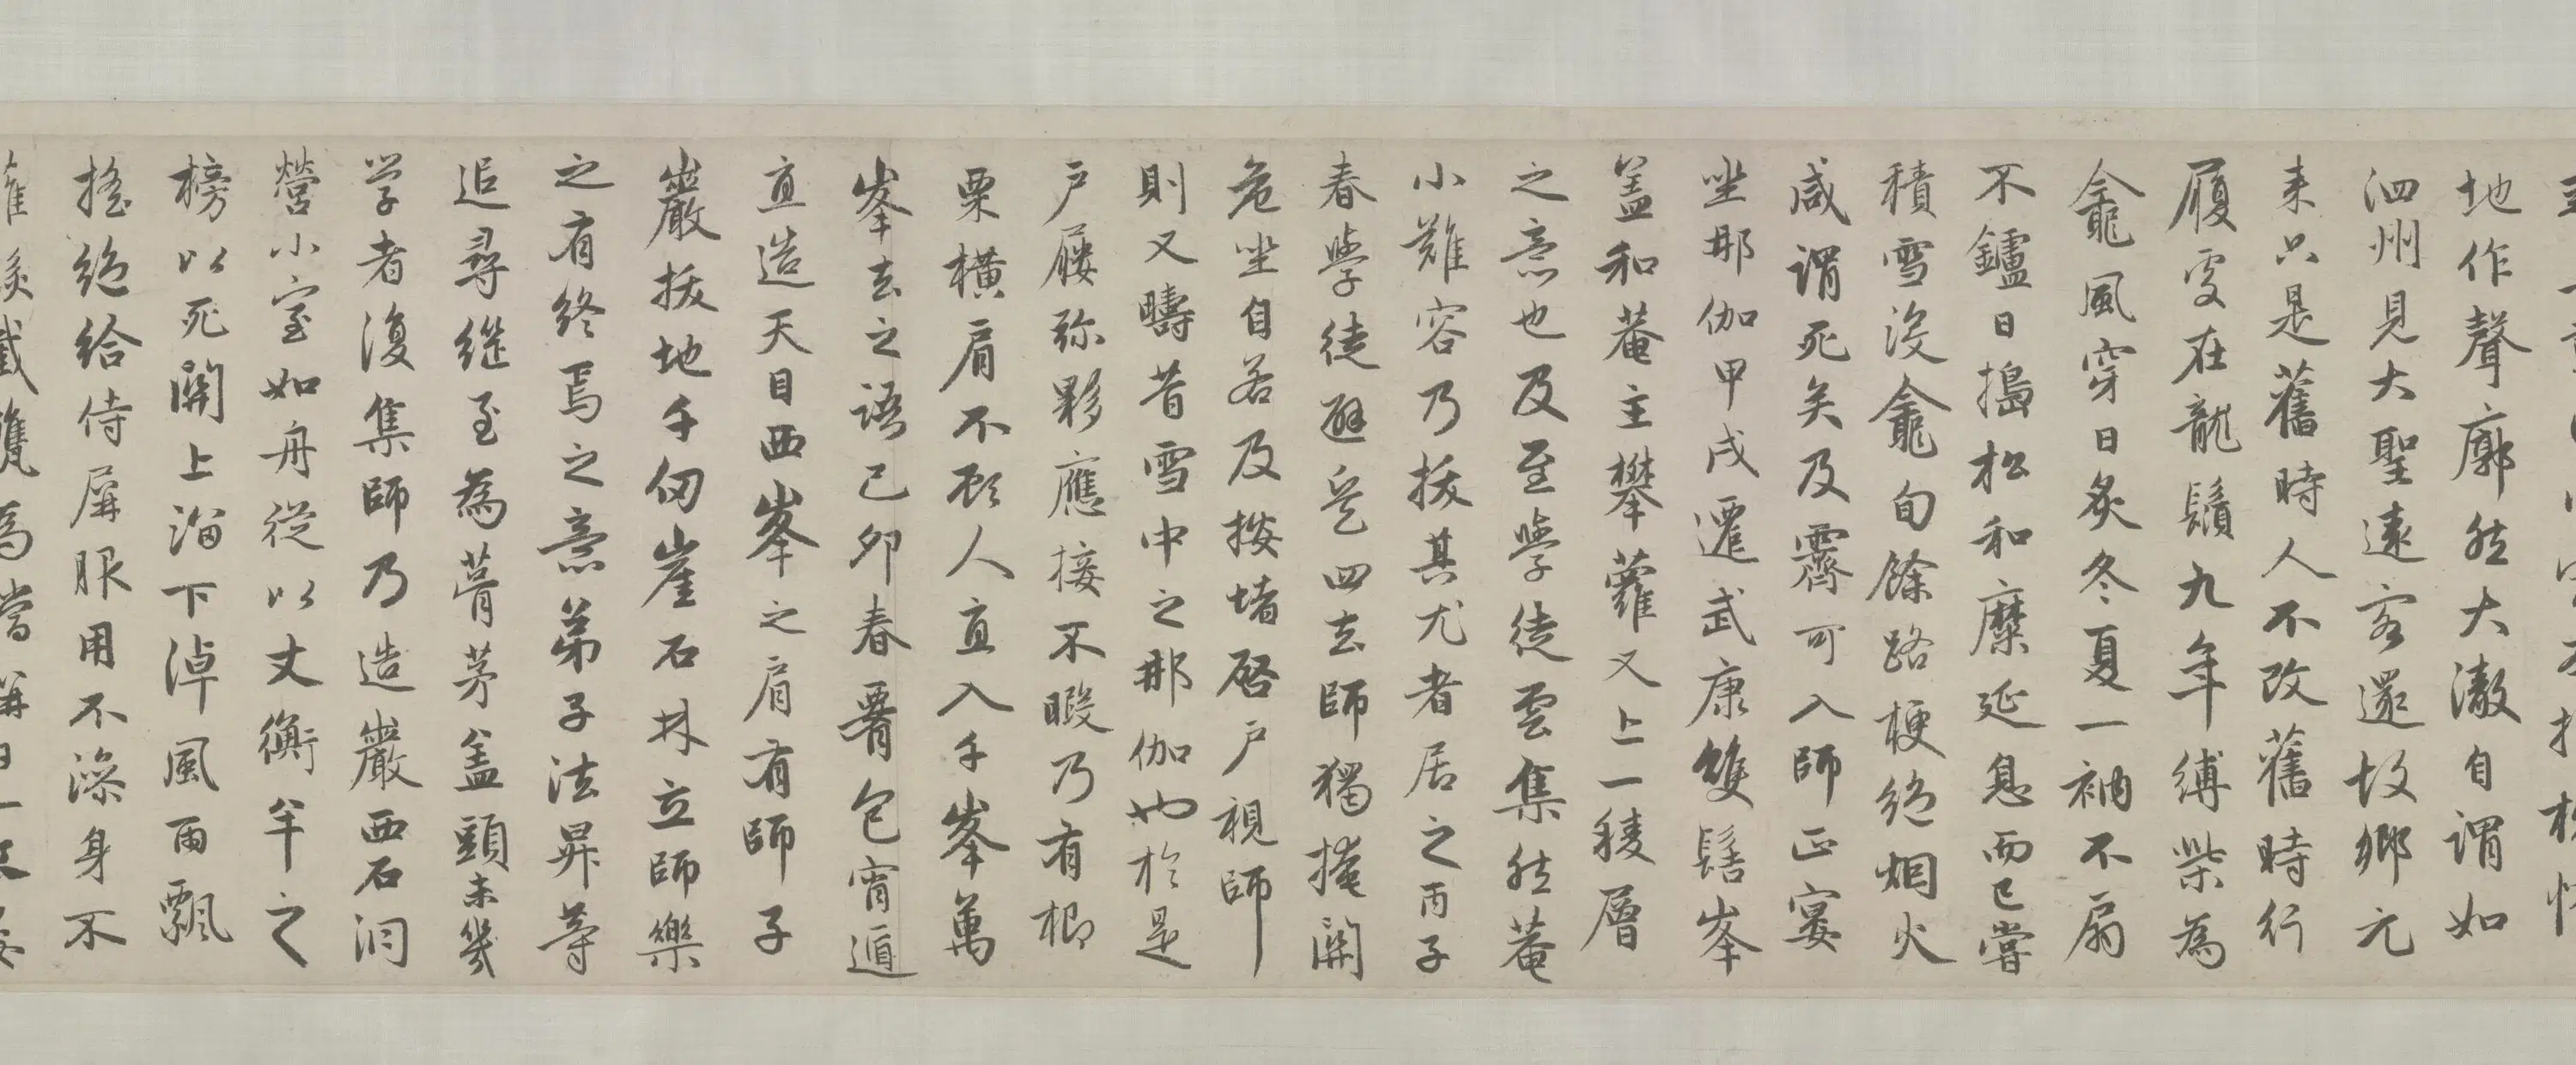 地作聲廓然大澈自謂如
泗州見大聖遠客還故鄉元
来只是舊時人不改舊時行
履處在龍鬚九年縛柴為
龕風穿日炙冬夏一衲不扇
不鑪日搗松和糜延息而已嘗
積雪没龕旬餘路梗絕烟火
咸謂死矣及霽可入師正宴
坐那伽甲戌遷武康雙髻峯
盖和菴主攀蘿又上一稜層
之意也及至學徒雲集然菴
小難容乃拔其尤者居之丙子
春學徒避兵四去師獨掩関
危坐自若及按堵啓戶視師
則又疇昔雪中之那伽也於是
戶屨弥夥應接不暇乃有楖
栗橫肩不顧人直入千峯萬
峯去之語己卯春腰包宵遁
直造天目西峯之肩有師子
巖拔地千仞崖石林立師樂
之有終焉之意弟子法昇等
追尋継至為葺茅盖頭未幾
学者復集師乃造巖西石洞
營小室如舟從以丈衡半之
榜以死関上溜下淖風雨飄
搖絕給侍屏服用不澡身不